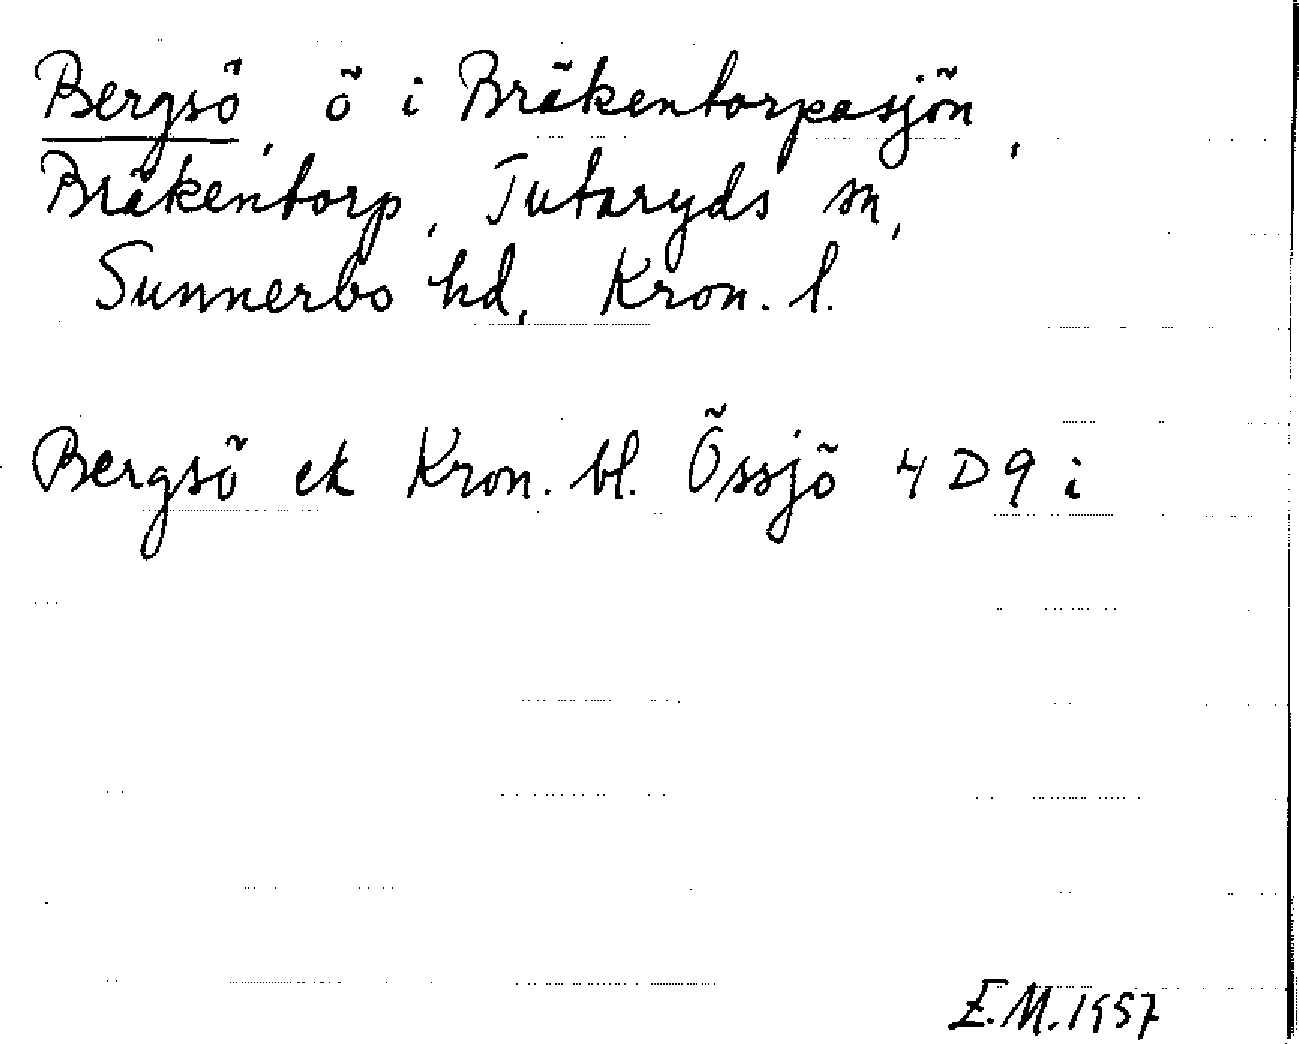 Bergsö, ö i Bräkentorpasjön,
Bräkentorp, Tutaryds sn,
Sunnerbo hd, Kron. l.
Bergsö ek Kron. bl. Össjö 4 D 9 i
E.M. 1957